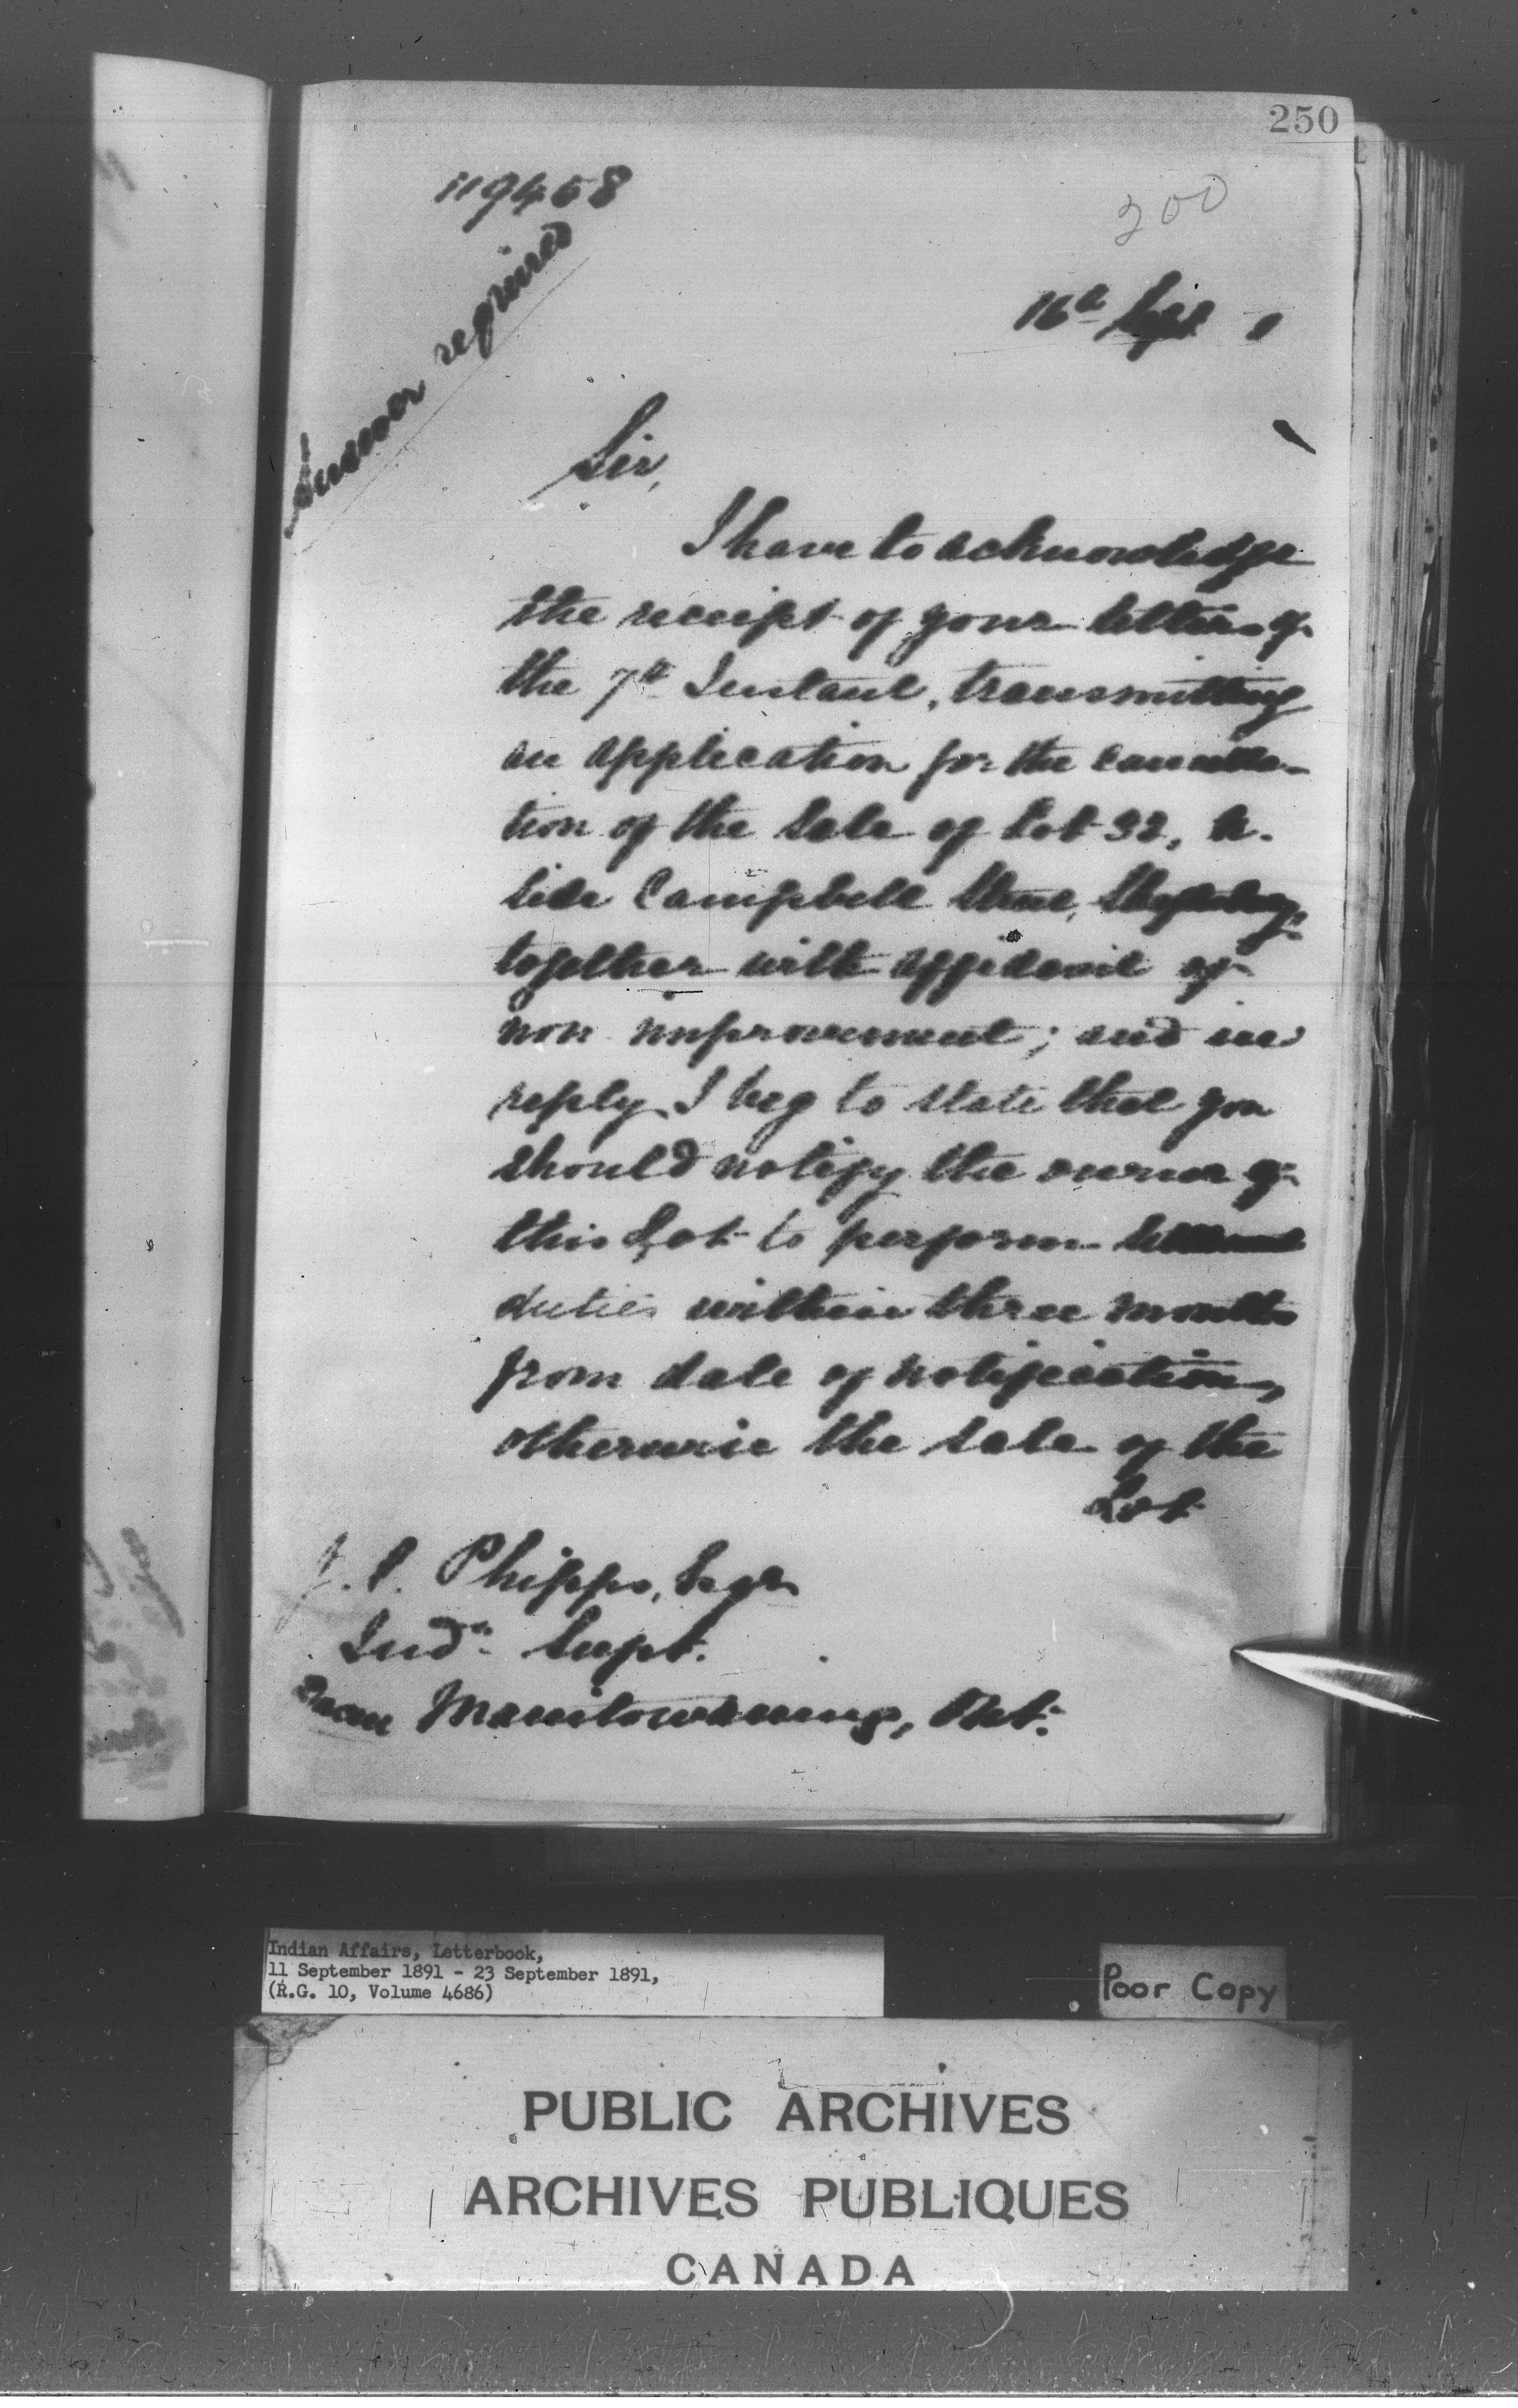 250
119458
200
16th Sept 1
Answer required
Sir,
I have to acknowledge
the receipt of your letter of
the 7th Instant, transmitting
an application for the cancella-
tion of the Sale of Lot 32, N.
side Campbell Street,
together with affidavit of
non improvement; and in
reply I beg to state that you
should notify the owner of
this Lot to perform settlement
duties within three months
from date of notification,
otherwise the sale of the
Lot
J. C. Phipps, Esqr
Indn Supt.
Manitowaning, Ont.
Indian Affairs, Letterbook,
11 September 1891 - 23 September 1891,
(R.G. 10, Volume 4686)
Poor Copy
PUBLIC ARCHIVES
ARCHIVES PUBLIQUES
CANADA